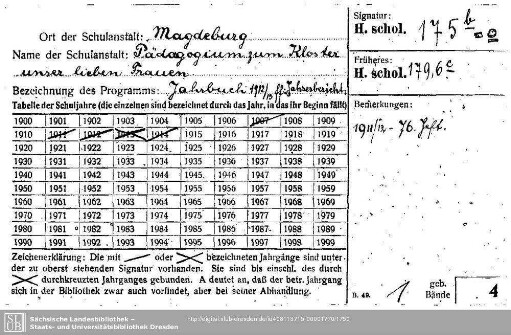 Ort der Schulanstalt: Magdeburg
Name der Schulanstalt: Pädagogium zum Kloster
unser lieben Frauen
Bezeichnung des Programms: Jahrbuch 1912/13 ff Jahresbericht
Tabelle der Schuljahre (die einzelnen sind bezeichnet durch das Jahr, in das ihr Beginn fällt)
1900 1901 1902 1903 1904 1905 1906 1907 1908 1909
1910 1911 1912 1913 1914 1915 1916 1917 1918 1919
1920 1921 1922 1923 1924 1925 1926 1927 1928 1929
1930 1931 1932 1933 1934 1935 1936 1937 1938 1939
1940 1941 1942 1943 1944 1945 1946 1947 1948 1949
1950 1951 1952 1953 1954 1955 1956 1957 1958 1959
1960 1961 1962 1963 1964 1965 1966 1967 1968 1969
1970 1971 1972 1973 1974 1975 1976 1977 1978 1979
1980 1981 1982 1983 1984 1985 1986 1987 1988 1989
1990 1991 1992 1993 1994 1995 1996 1997 1998 1999
Zeichenerklärung: Die mit oder bezeichneten Jahrgänge sind unter
der zu oberst stehenden Signatur vorhanden. Sie sind bis einschl. des durch
durchkreuzten Jahrganges gebunden. A deutet an, daß der betr. Jahrgang
sich in der Bibliothek zwar auch vorfindet, aber bei seiner Abhandlung.
Signatur:
H. schol. 175 b
Früheres:
H. schol. 179,6 c
Bemerkungen:
1911/12 - 76. Heft.
B. 49. 1 geb. Bände 4
SLUB
Sächsische Landesbibliothek –
Staats- und Universitätsbibliothek Dresden